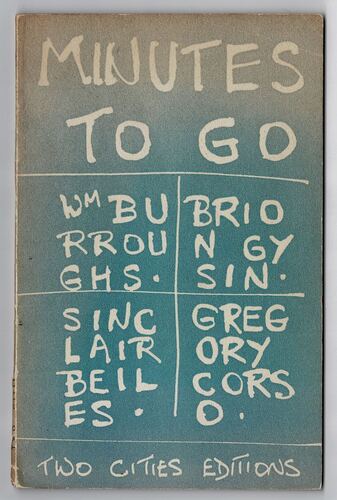 MINUTES
TO GO
WM BU
RROU
GHS.
BRIO
N GY
SIN.
SINC
LAIR
BEIL
ES.
GREG
ORY
CORS
O.
TWO CITIES EDITIONS